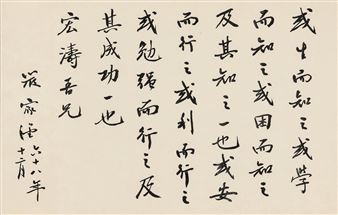 或生而知之或學
而知之或困而知之
及其知之一也或安
而行之或利而行之
或勉强而行之及
其成功一也
宏濤吾兄
嚴家淦六十八年
十二月